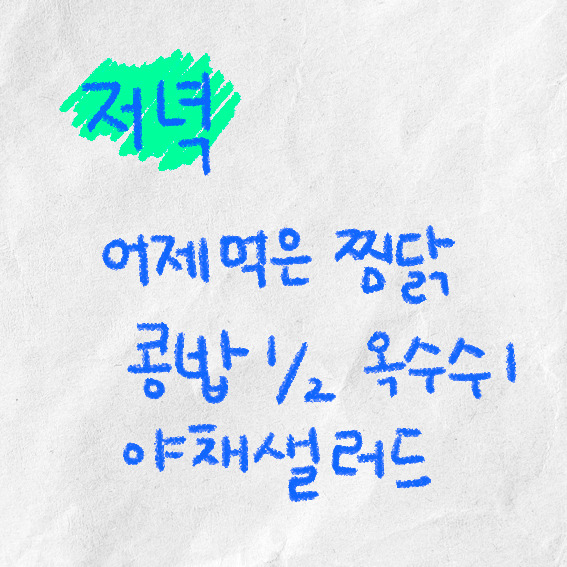 저녁
어제먹은 찡닭
콩밥 1/2 옥수수1
야채샐러드